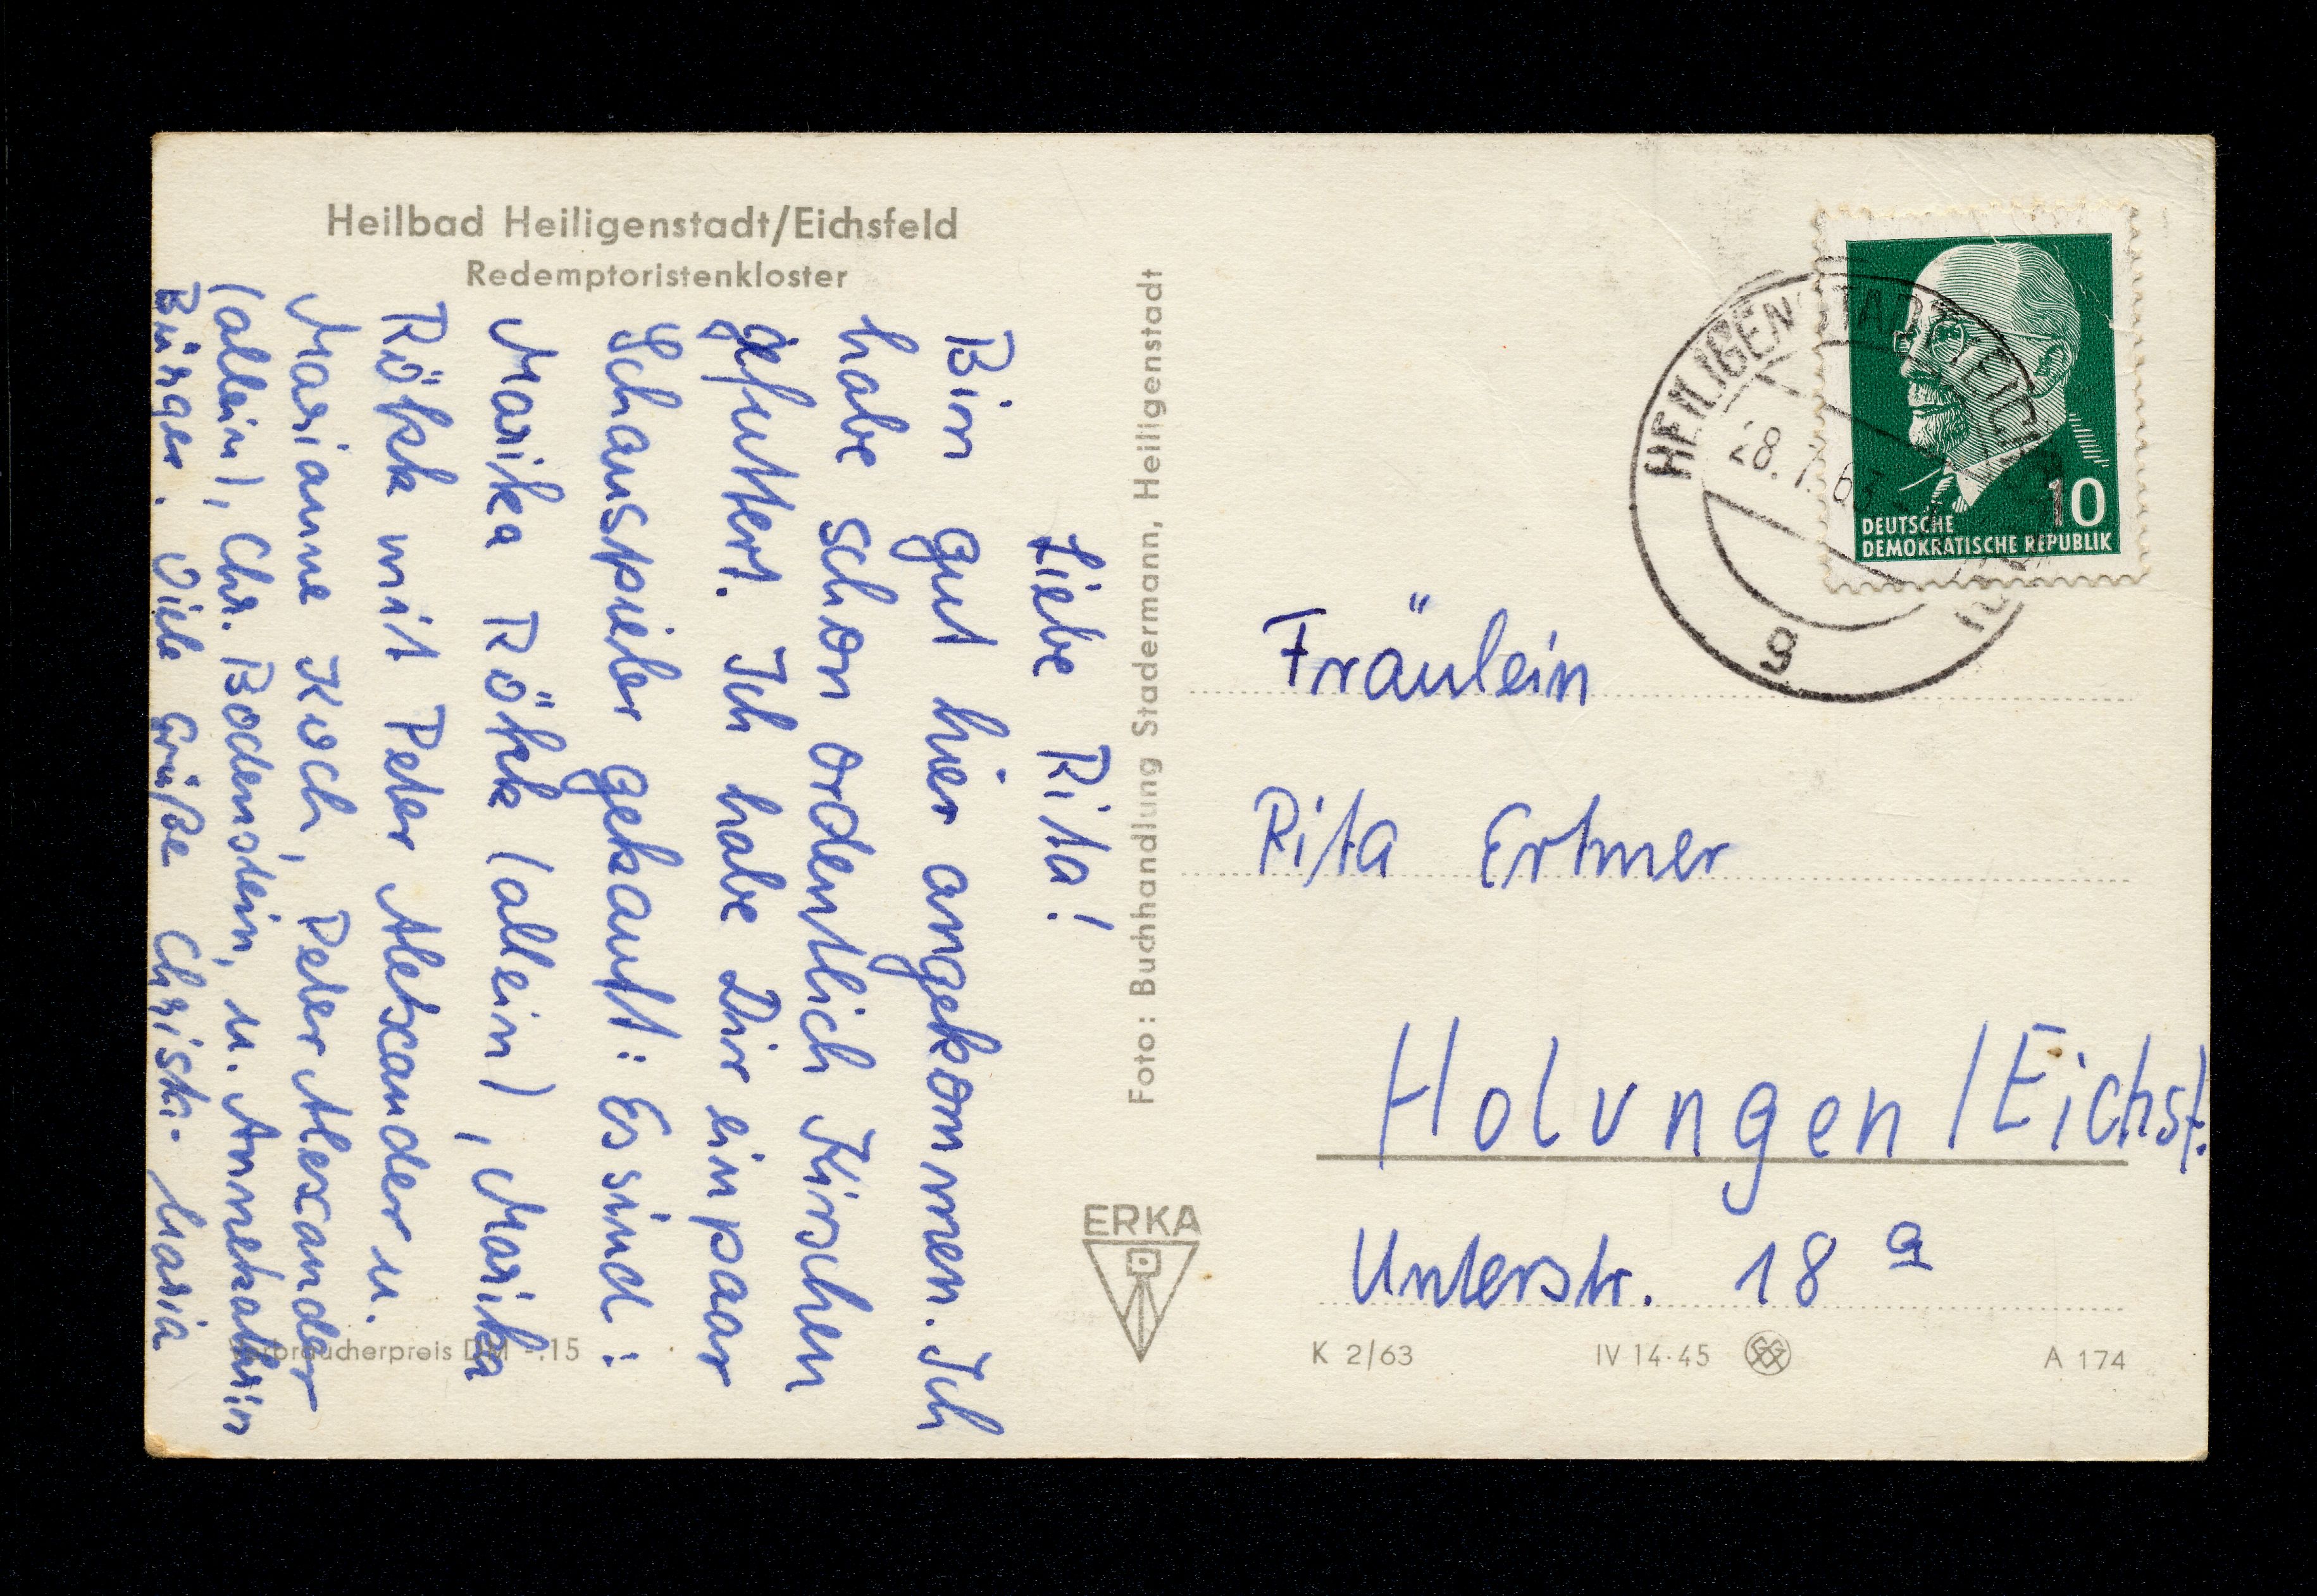 Heilbad Heiligenstadt/Eichsfeld
Redemptoristenkloster
Liebe Rita!
Bin gut hier angekommen. Ich
habe schon ordentlich Kirschen
gefuttert. Ich habe Dir ein paar
Schauspieler gekauft: Es sind:
Marika Rökk (allein), Marika
Rökk mit Peter Aletxander u.
Marianne Koch, Peter Alexander
(allein), Chr. Bodenstein, u. Annekathrin
Bürger. Viele Grüße Christa-Maria
Verbraucherpreis DM -.15
Foto: Buchhandlung Stadermann, Heiligenstadt
ERKA
HEILIGENSTADT (EICHSF)
28.7.63
g
10
DEUTSCHE
DEMOKRATISCHE REPUBLIK
Fräulein
Rita Ertmer
Holungen/Eichsf.
Unterstr. 18 a
K 2/63
IV 14-45
A 174